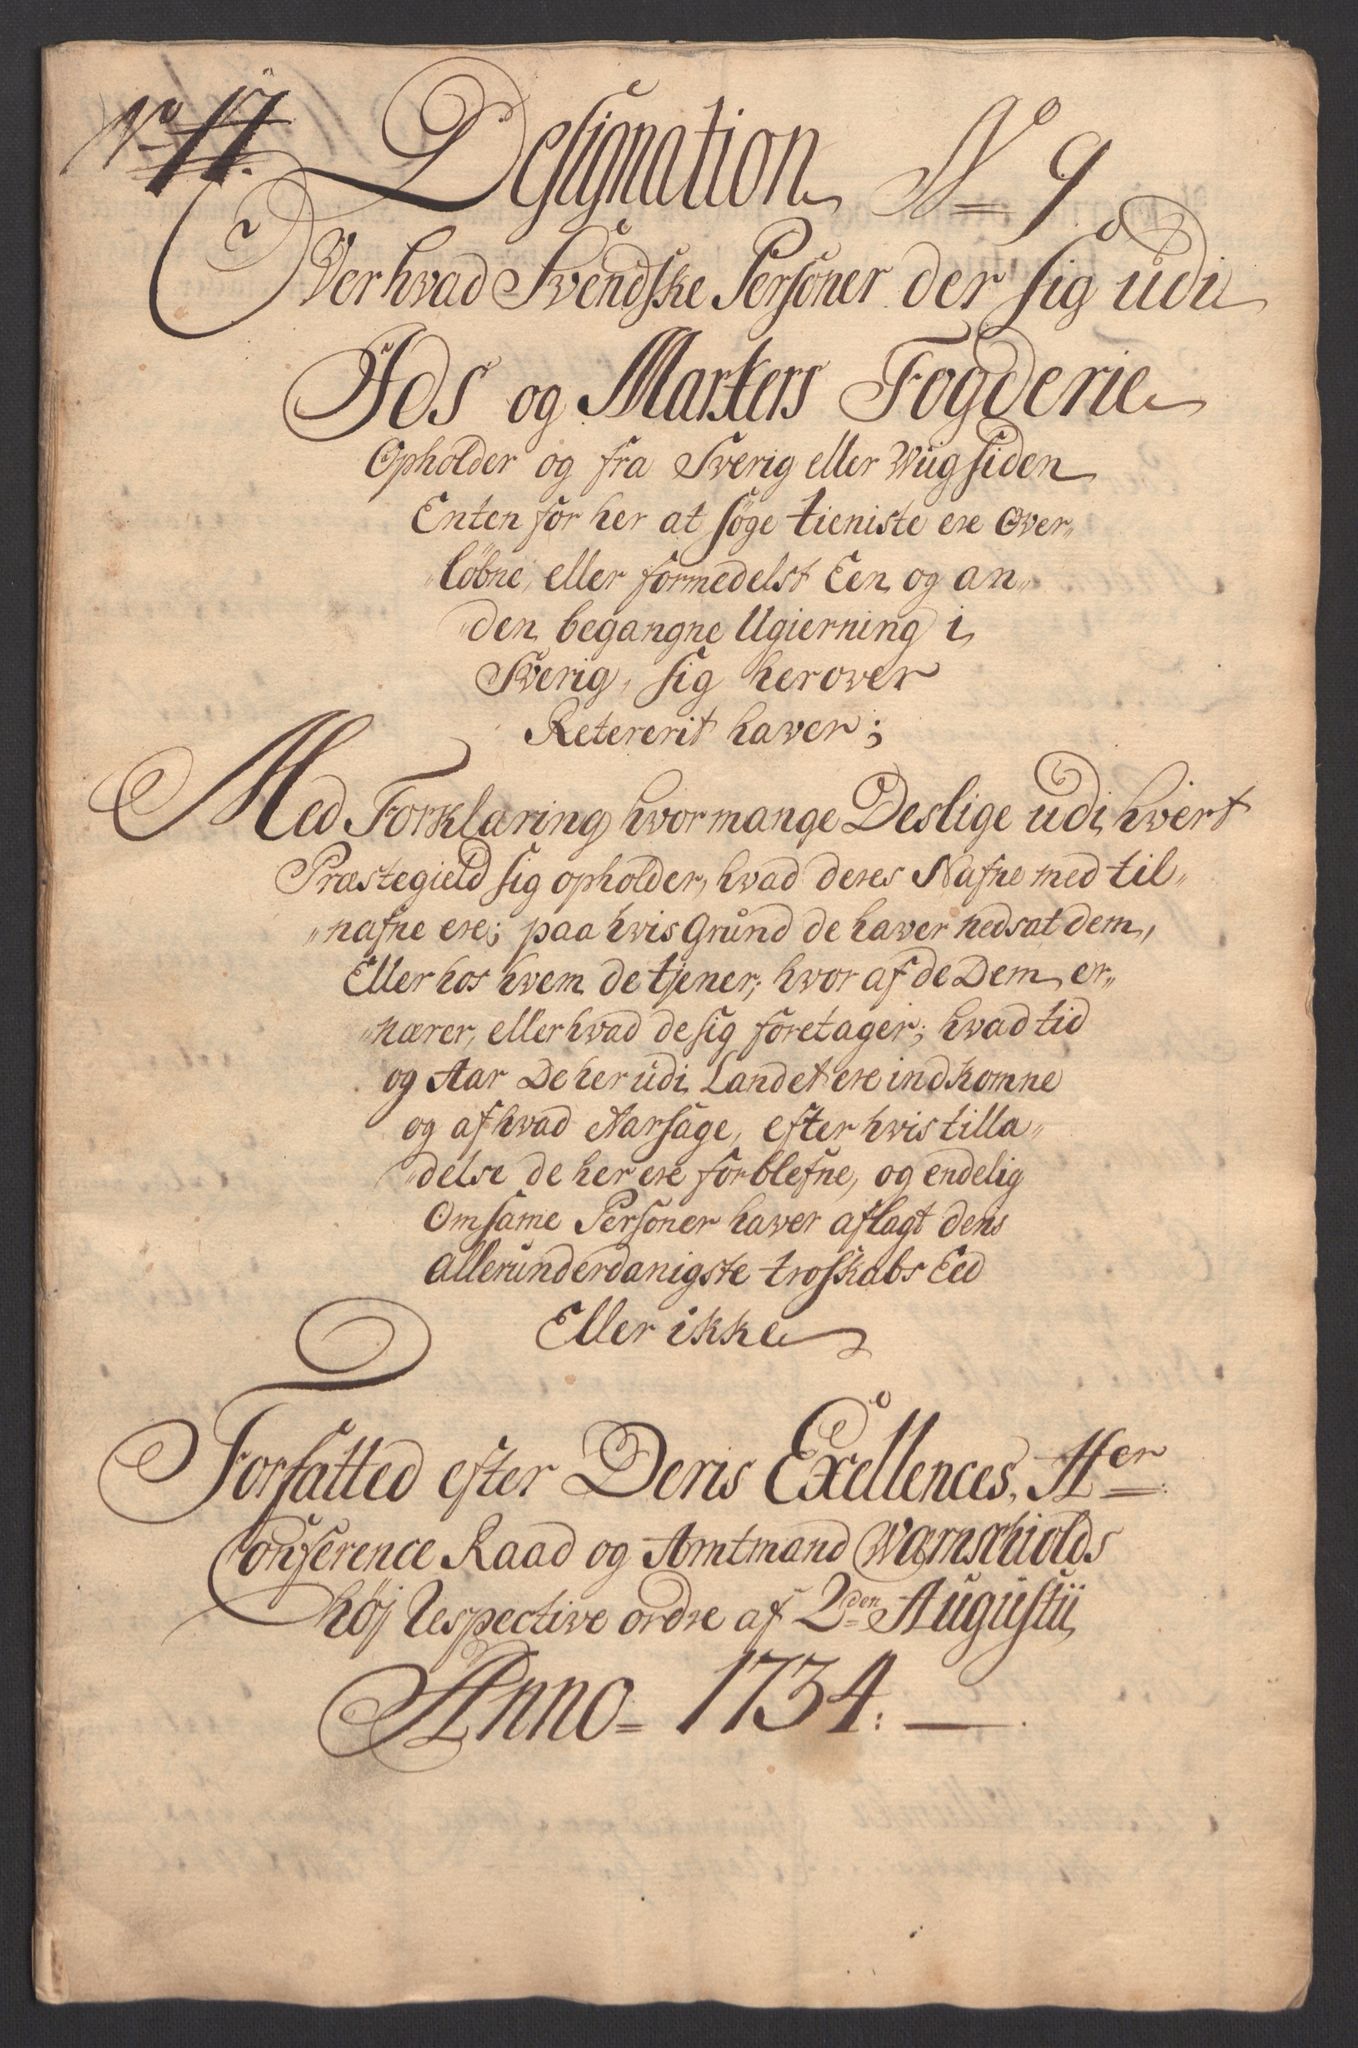 No 17.
Designation No 9
Over hvad Svendske Personer der sig udi
Ids og Markers Fogderie
Opholder og fra Sverig eller Wiigsiden
Enten for her at søge tieniste ere Over-
løbne, eller formedelst Een og an-
den begangne Ugierning i
Sverig, sig herover
Retererit haver;
Med Forklaring hvor mange Deslige udi hvert
Præstegield sig opholder, hvad deres Nafne med til-
nafne ere; paa hvis Grund de haver nedsat dem,
Eller hos hvem de tjener; hvor af de Dem er-
nærer, eller hvad de sig foretager; hvad tid
og Aar De her udi Landet ere indkomne
og af hvad Aarsage, efter hvis tilla-
delse de her ere forblefne, og endelig
Om same Personer haver aflagt dens
allerunderdanigste troskabs Eed
Eller ikke
Forfatted efter Deris Exellences, Her
Conference Raad og Amtmand Wærnschiolds
høj Respective ordre af 2den Augustii
Anno 1734.